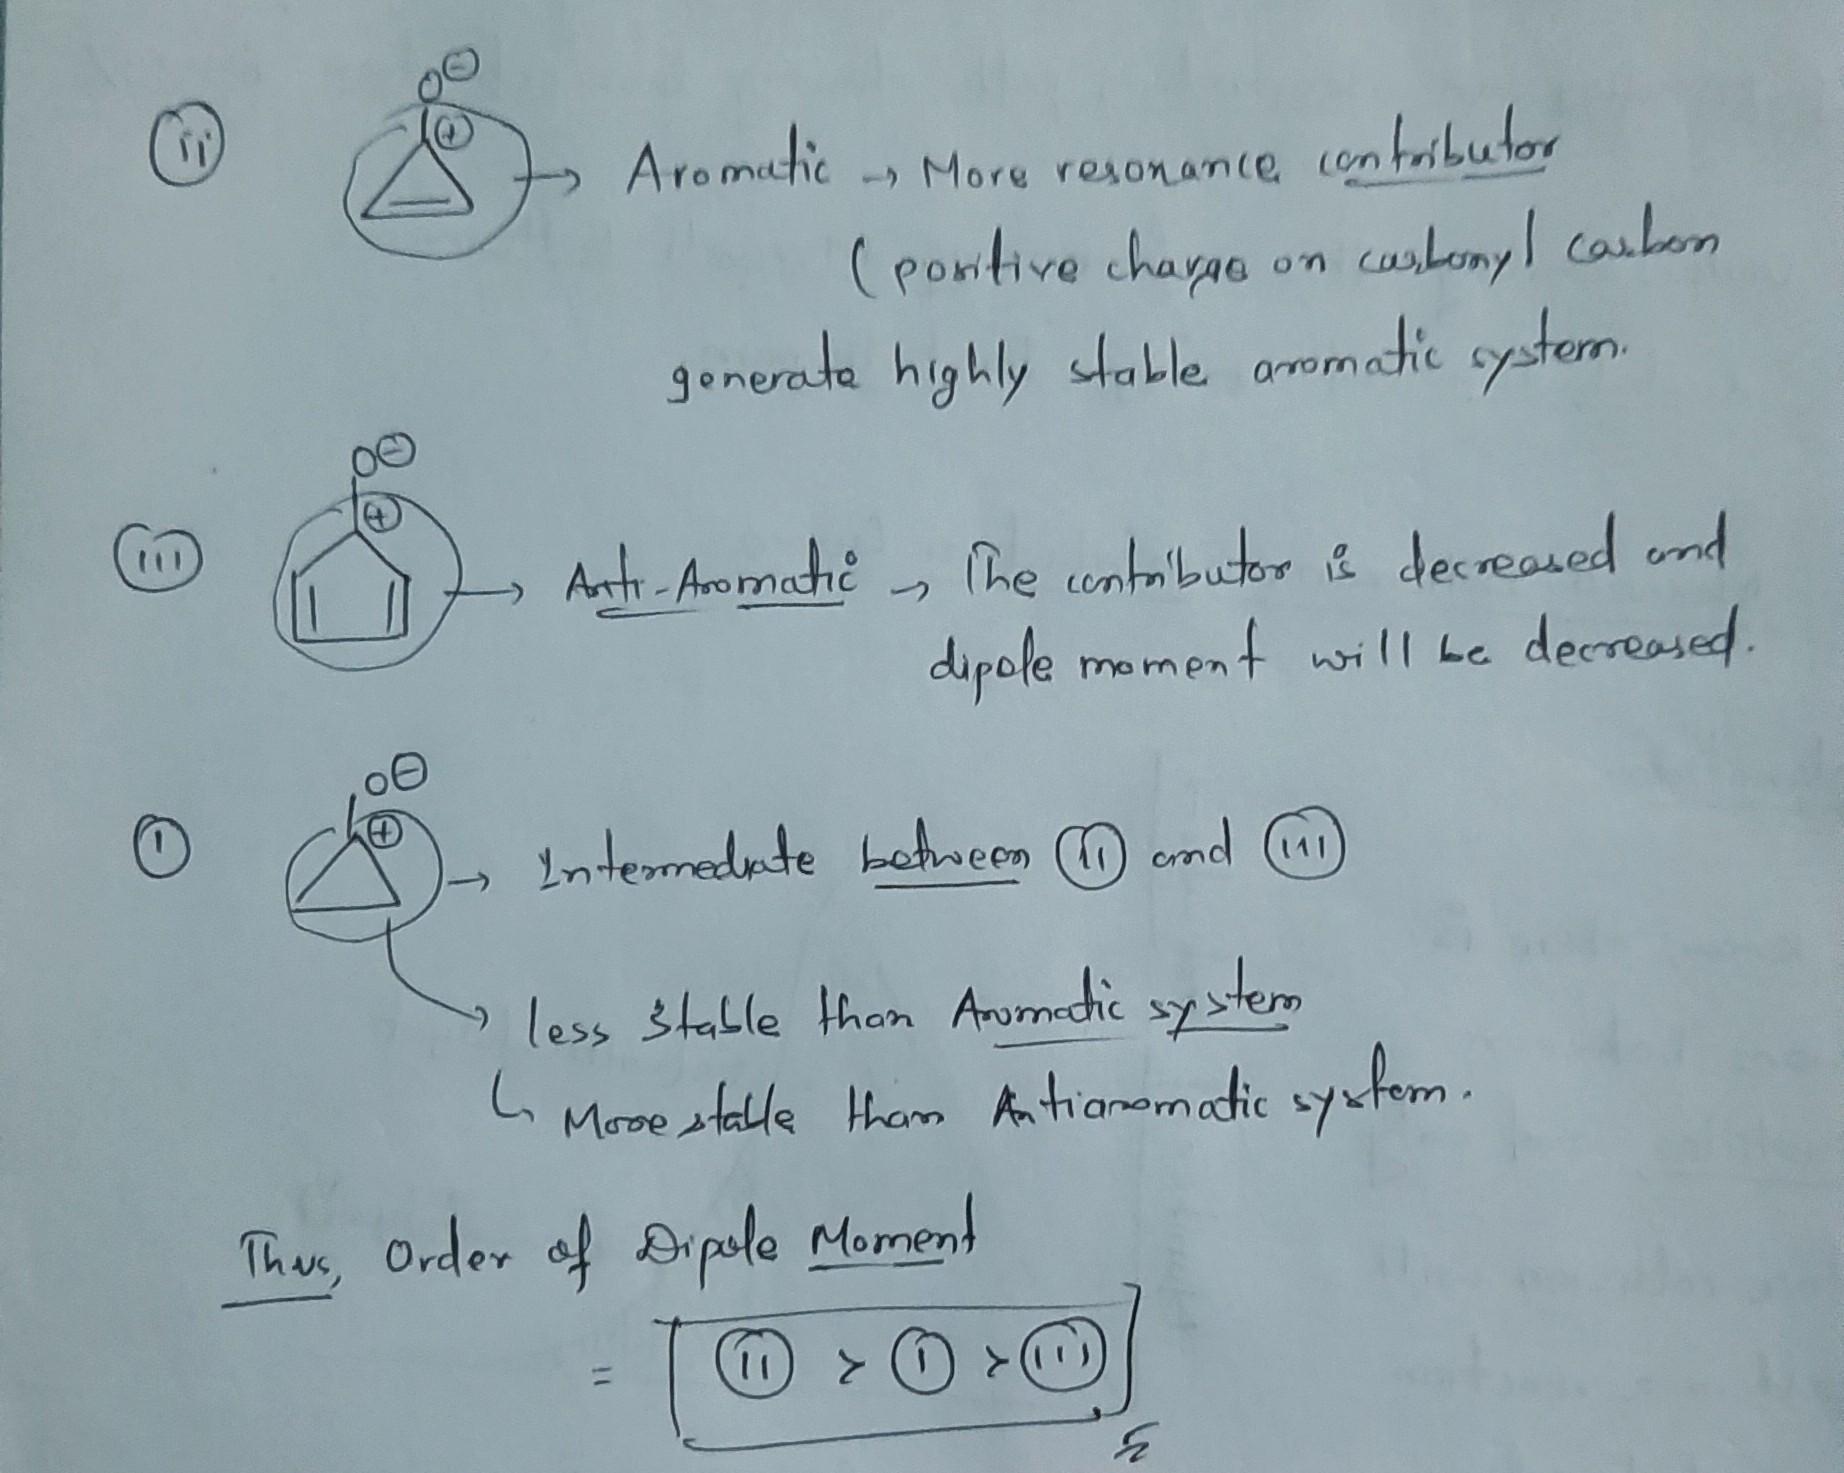 O⊖
(ii) ⊕ → Aromatic → More resonance contributor
(positive charge on carbonyl carbon
generate highly stable aromatic system.
O⊖
(iii) ⊕ → Anti-Aromatic → The contributor is decreased and
dipole moment will be decreased.
O⊖
(i) ⊕ → Intermediate between (ii) and (iii)
→ less stable than Aromatic system
↳ More stable than Antiaromatic system.
Thus, Order of Dipole Moment
= [(ii) > (i) > (iii)]